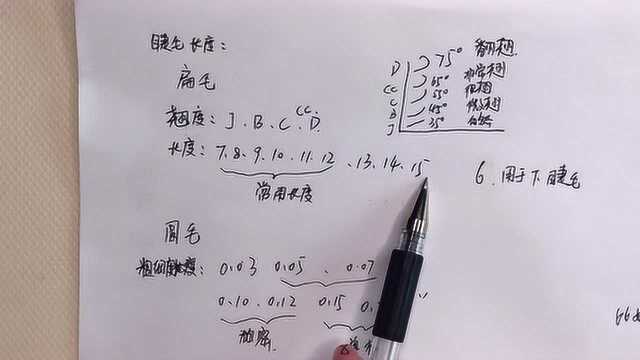 睫毛长度:
扁毛
翘度: J. B. C. CC. D.
长度: 7. 8. 9. 10. 11. 12 、13. 14. 15
常用长度
D 75° 翻翘
CC 65° 非常翘
C 55° 很翘
B 45° 微翘
J 35° 自然
6. 用于下睫毛
圆毛
粗细 度: 0.03 0.05 、 0.07
0.10 、 0.12 0.15